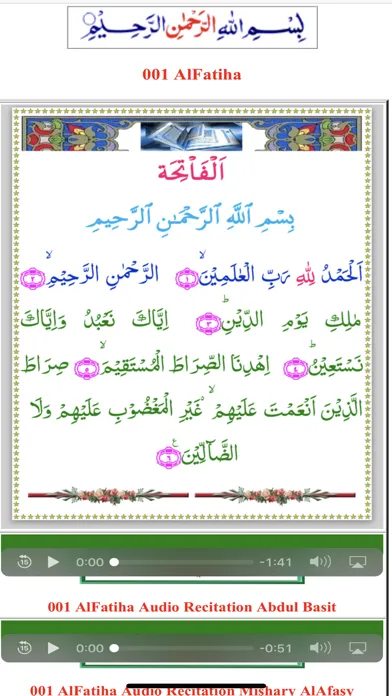 بِسْمِ اللهِ الرَّحْمٰنِ الرَّحِيْمِ
001 AlFatiha
اَلْفَاْتِحَة
بِسْمِ ٱللَّهِ ٱلرَّحْمَـٰنِ ٱلرَّحِيمِ
اَلْحَمْدُ لِلّٰهِ رَبِّ الْعٰلَمِيْنَۙ ﴿۱﴾ الرَّحْمٰنِ الرَّحِيْمِۙ ﴿۲﴾
مٰلِكِ يَوْمِ الدِّيْنِؕ ﴿۳﴾ اِيَّاكَ نَعْبُدُ وَاِيَّاكَ
نَسْتَعِيْنُؕ ﴿۴﴾ اِهْدِنَا الصِّرَاطَ الْمُسْتَقِيْمَۙ ﴿۵﴾ صِرَاطَ
الَّذِيْنَ اَنْعَمْتَ عَلَيْهِمْ ۙ غَيْرِ الْمَغْضُوْبِ عَلَيْهِمْ وَلَا
الضَّآلِّيْنَ ﴿۶﴾
15 0:00 -1:41
001 AlFatiha Audio Recitation Abdul Basit
15 0:00 -0:51
001 AlFatiha Audio Recitation Mishary AlAfasy